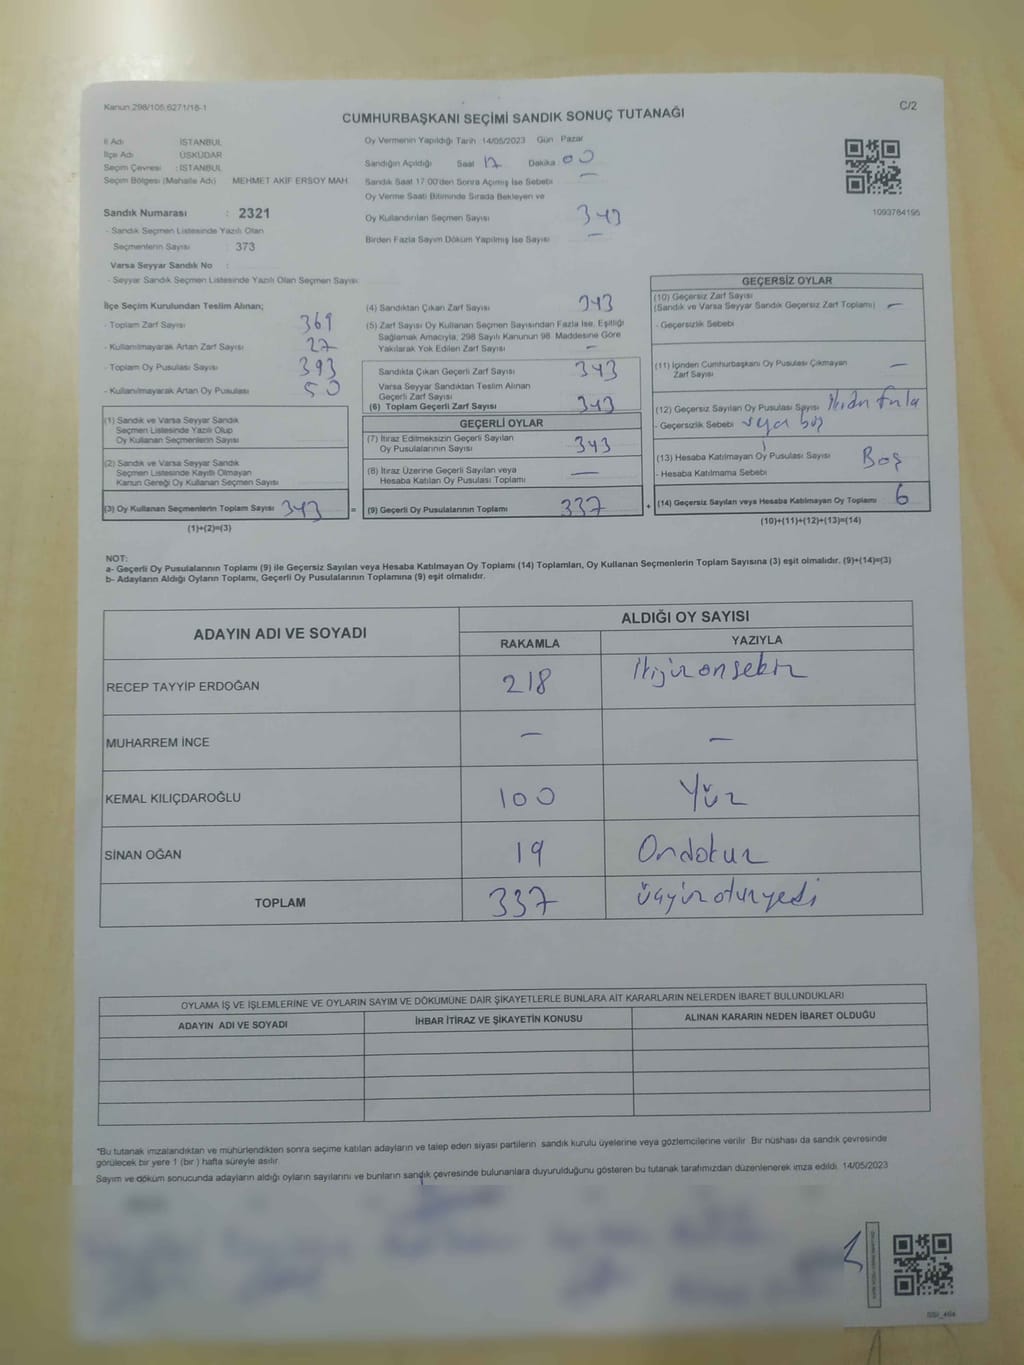 Kanun 298/105;6271/18-1
C/2
CUMHURBAŞKANI SEÇİMİ SANDIK SONUÇ TUTANAĞI
İl Adı : İSTANBUL
İlçe Adı : ÜSKÜDAR
Seçim Çevresi : İSTANBUL
Seçim Bölgesi (Mahalle Adı) MEHMET AKİF ERSOY MAH.
Sandık Numarası : 2321
- Sandık Seçmen Listesinde Yazılı Olan
Seçmenlerin Sayısı : 373
Varsa Seyyar Sandık No :
- Seyyar Sandık Seçmen Listesinde Yazılı Olan Seçmen Sayısı:
Oy Vermenin Yapıldığı Tarih 14/05/2023 Gün Pazar
Sandığın Açıldığı Saat 17 Dakika 00
Sandık Saat 17:00'den Sonra Açılmış İse Sebebi —
Oy Verme Saati Bitiminde Sırada Bekleyen ve
Oy Kullandırılan Seçmen Sayısı 343
Birden Fazla Sayım Döküm Yapılmış İse Sayısı —
1093784195
İlçe Seçim Kurulundan Teslim Alınan;
- Toplam Zarf Sayısı 369
- Kullanılmayarak Artan Zarf Sayısı 27
- Toplam Oy Pusulası Sayısı 393
- Kullanılmayarak Artan Oy Pusulası 50
(1) Sandık ve Varsa Seyyar Sandık
Seçmen Listesinde Yazılı Olup
Oy Kullanan Seçmenlerin Sayısı
(2) Sandık ve Varsa Seyyar Sandık
Seçmen Listesinde Kayıtlı Olmayan
Kanun Gereği Oy Kullanan Seçmen Sayısı
(3) Oy Kullanan Seçmenlerin Toplam Sayısı 343 =
(1)+(2)=(3)
(4) Sandıktan Çıkan Zarf Sayısı 343
(5) Zarf Sayısı Oy Kullanan Seçmen Sayısından Fazla İse, Eşitliği
Sağlamak Amacıyla, 298 Sayılı Kanunun 98. Maddesine Göre
Yakılarak Yok Edilen Zarf Sayısı —
Sandıkta Çıkan Geçerli Zarf Sayısı 343
Varsa Seyyar Sandıktan Teslim Alınan
Geçerli Zarf Sayısı
(6) Toplam Geçerli Zarf Sayısı 343
GEÇERLİ OYLAR
(7) İtiraz Edilmeksizin Geçerli Sayılan
Oy Pusulalarının Sayısı 343
(8) İtiraz Üzerine Geçerli Sayılan veya
Hesaba Katılan Oy Pusulası Toplamı —
(9) Geçerli Oy Pusulalarının Toplamı 337 +
GEÇERSİZ OYLAR
(10) Geçersiz Zarf Sayısı
(Sandık ve Varsa Seyyar Sandık Geçersiz Zarf Toplamı) —
- Geçersizlik Sebebi
(11) İçinden Cumhurbaşkanı Oy Pusulası Çıkmayan
Zarf Sayısı —
(12) Geçersiz Sayılan Oy Pusulası Sayısı fazla
- Geçersizlik Sebebi veya boş
(13) Hesaba Katılmayan Oy Pusulası Sayısı Boş
- Hesaba Katılmama Sebebi
(14) Geçersiz Sayılan veya Hesaba Katılmayan Oy Toplamı 6
(10)+(11)+(12)+(13)=(14)
NOT:
a- Geçerli Oy Pusulalarının Toplamı (9) ile Geçersiz Sayılan veya Hesaba Katılmayan Oy Toplamı (14) Toplamları, Oy Kullanan Seçmenlerin Toplam Sayısına (3) eşit olmalıdır. (9)+(14)=(3)
b- Adayların Aldığı Oyların Toplamı, Geçerli Oy Pusulalarının Toplamına (9) eşit olmalıdır.
ADAYIN ADI VE SOYADI
ALDIĞI OY SAYISI
RAKAMLA YAZIYLA
RECEP TAYYİP ERDOĞAN 218 İkiyüzonsekiz
MUHARREM İNCE — —
KEMAL KILIÇDAROĞLU 100 Yüz
SİNAN OĞAN 19 Ondokuz
TOPLAM 337 üçyüzotuzyedi
OYLAMA İŞ VE İŞLEMLERİNE VE OYLARIN SAYIM VE DÖKÜMÜNE DAİR ŞİKAYETLERLE BUNLARA AİT KARARLARIN NELERDEN İBARET BULUNDUKLARI
ADAYIN ADI VE SOYADI İHBAR İTİRAZ VE ŞİKAYETİN KONUSU ALINAN KARARIN NEDEN İBARET OLDUĞU
*Bu tutanak imzalandıktan ve mühürlendikten sonra seçime katılan adayların ve talep eden siyasi partilerin sandık kurulu üyelerine veya gözlemcilerine verilir. Bir nüshası da sandık çevresinde
görülecek bir yere 1 (bir) hafta süreyle asılır.
Sayım ve döküm sonucunda adayların aldığı oyların sayılarını ve bunların sandık çevresinde bulunanlara duyurulduğunu gösteren bu tutanak tarafımızdan düzenlenerek imza edildi. 14/05/2023